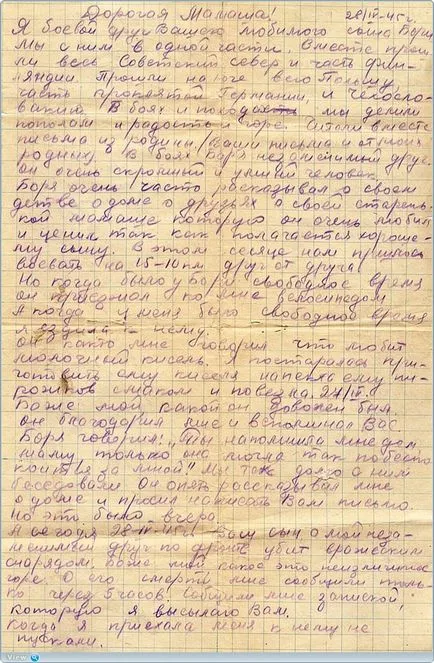 Дорогая Мамаша! 28/IV-45г.
Я боевой друг Вашего любимого сына Бори
Мы с ним в одной части. Вместе прош
ли весь Советский север и часть Фин-
ляндии. Прошли на юге всю Польшу,
часть проклятой Германии, и Чехосло-
вакии. В боях и походах мы делили
пополам и радость и горе. Читали вместе
письма из родины. (Ваши письма и от моих
родных). В боях Боря незаменимый друг.
он очень скромный и умный человек.
Боря очень часто рассказывал о своем
детстве о доме о друзьях о своей старень-
кой мамаше которую он очень любил
и ценил так как полагается хороше-
му сыну. В этом месяце нам пришлось
воевать на 15-10 км друг от друга
Но когда было у Бори свободное время
он приезжал ко мне велосипедом
А когда у меня было свободное время
я ездила к нему.
Он как-то мне говорил что любит
молочный кисель. Я постаралась при-
готовить ему киселя напекла ему пи-
рожков с маком и повезла 27/IV.
Боже мой какой он доволен был.
он благодарил мне и вспоминал Вас.
Боря говорил: "Ты напомнила мне дом
маму только она могла так побеспо
коится за мной" мы так долго с ним
беседовали. Он опять рассказывал мне
о доме и просил написать Вам письмо.
Но это было вчера.
А сегодня 28-IV-45г. Ваш сын а мой неза-
менимый друг по фронту убит вражеским
снарядом. Боже мой какое это неизлечимое
горе. О его смерти мне сообщили толь-
ко через 5 часов. Сообщили мне запиской,
которую я высылаю Вам.
Когда я приехала меня к нему не
пускали.
View